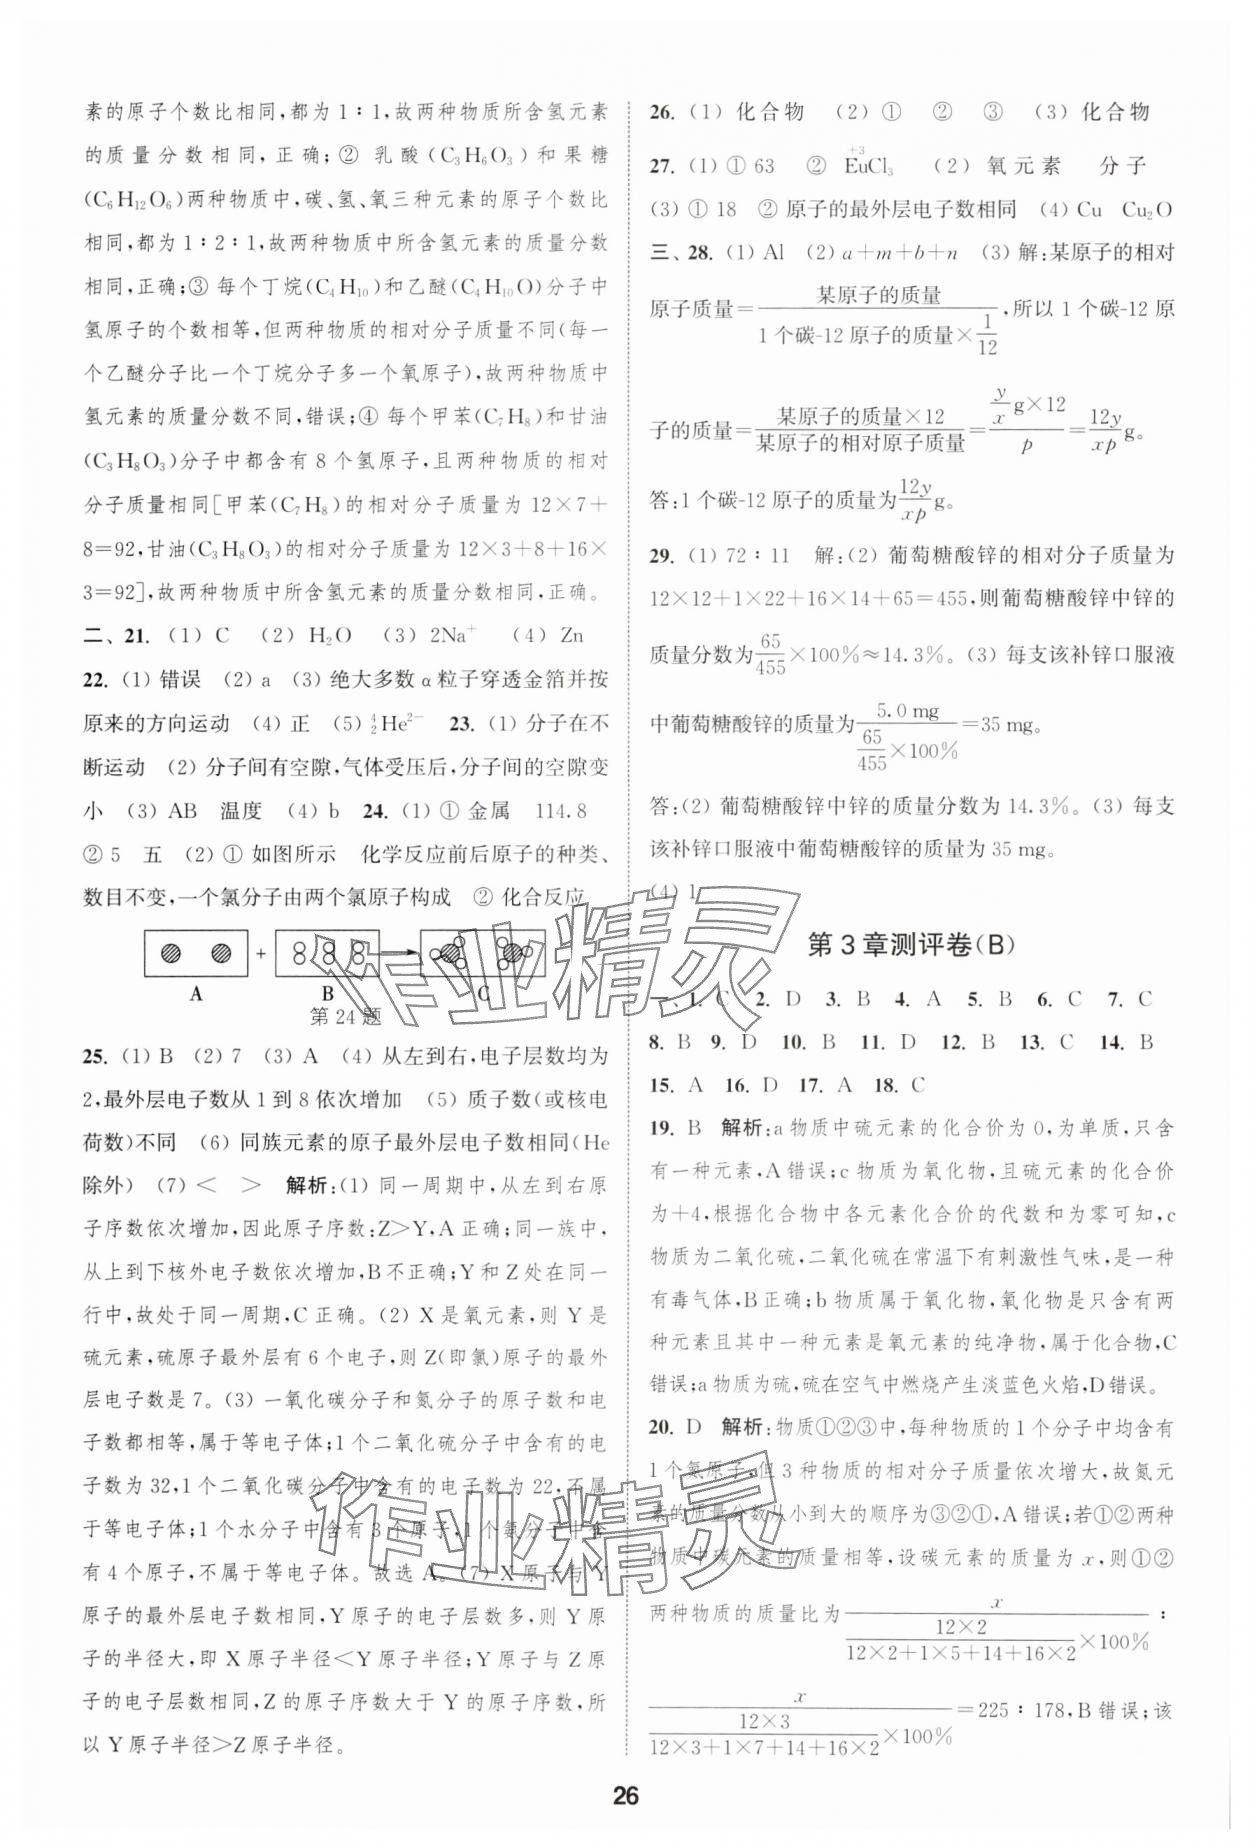 素的原子个数比相同,都为1∶1,故两种物质所含氢元素
的质量分数相同,正确;② 乳酸(C₃H₆O₃)和果糖
(C₆H₁₂O₆)两种物质中,碳、氢、氧三种元素的原子个数比
相同,都为1∶2∶1,故两种物质中所含氢元素的质量分数
相同,正确;③ 每个丁烷(C₄H₁₀)和乙醚(C₄H₁₀O)分子中
氢原子的个数相等,但两种物质的相对分子质量不同(每一
个乙醚分子比一个丁烷分子多一个氧原子),故两种物质中
氢元素的质量分数不同,错误;④ 每个甲苯(C₇H₈)和甘油
(C₃H₈O₃)分子中都含有8个氢原子,且两种物质的相对
分子质量相同[甲苯(C₇H₈)的相对分子质量为12×7+
8=92,甘油(C₃H₈O₃)的相对分子质量为12×3+8+16×
3=92],故两种物质中所含氢元素的质量分数相同,正确。
二、21. (1) C (2) H₂O (3) 2Na⁺ (4) Zn
22. (1) 错误 (2) a (3) 绝大多数α粒子穿透金箔并按
原来的方向运动 (4) 正 (5) ⁴₂He²⁻ 23. (1) 分子在不
断运动 (2) 分子间有空隙,气体受压后,分子间的空隙变
小 (3) AB 温度 (4) b 24. (1) ① 金属 114.8
② 5 五 (2) ① 如图所示 化学反应前后原子的种类、
数目不变,一个氯分子由两个氯原子构成 ② 化合反应
+
A B C
第24题
25. (1) B (2) 7 (3) A (4) 从左到右,电子层数均为
2,最外层电子数从1到8依次增加 (5) 质子数(或核电
荷数)不同 (6) 同族元素的原子最外层电子数相同(He
除外) (7) < > 解析:(1) 同一周期中,从左到右原
子序数依次增加,因此原子序数:Z>Y,A正确;同一族中,
从上到下核外电子数依次增加,B不正确;Y和Z处在同一
行中,故处于同一周期,C正确。(2) X是氧元素,则Y是
硫元素,硫原子最外层有6个电子,则Z(即氯)原子的最外
层电子数是7。(3) 一氧化碳分子和氮分子的原子数和电
子数都相等,属于等电子体;1个二氧化硫分子中含有的电
子数为32,1个二氧化碳分子中含有的电子数为22,不属
于等电子体;1个水分子中含有3个原子,1个氨分子中含
有4个原子,不属于等电子体。故选A。(7) X原子与Y
原子的最外层电子数相同,Y原子的电子层数多,则Y原
子的半径大,即X原子半径<Y原子半径;Y原子与Z原
子的电子层数相同,Z的原子序数大于Y的原子序数,所
以Y原子半径>Z原子半径。
26. (1) 化合物 (2) ① ② ③ (3) 化合物
27. (1) ① 63 ② E⁺³uCl₃ (2) 氧元素 分子
(3) ① 18 ② 原子的最外层电子数相同 (4) Cu Cu₂O
三、28. (1) Al (2) a+m+b+n (3) 解:某原子的相对
原子质量=某原子的质量/(1个碳-12原子的质量×1/12),所以1个碳-12原
子的质量=某原子的质量×12/某原子的相对原子质量=(y/x g×12)/p=12y/xp g。
答:1个碳-12原子的质量为12y/xp g。
29. (1) 72∶11 解:(2) 葡萄糖酸锌的相对分子质量为
12×12+1×22+16×14+65=455,则葡萄糖酸锌中锌的
质量分数为65/455×100%≈14.3%。(3) 每支该补锌口服液
中葡萄糖酸锌的质量为5.0 mg/(65/455×100%)=35 mg。
答:(2) 葡萄糖酸锌中锌的质量分数为14.3%。(3) 每支
该补锌口服液中葡萄糖酸锌的质量为35 mg。
(4) 1
第3章测评卷(B)
一、1. C 2. D 3. B 4. A 5. B 6. C 7. C
8. B 9. D 10. B 11. D 12. B 13. C 14. B
15. A 16. D 17. A 18. C
19. B 解析:a物质中硫元素的化合价为0,为单质,只含
有一种元素,A错误;c物质为氧化物,且硫元素的化合价
为+4,根据化合物中各元素化合价的代数和为零可知,c
物质为二氧化硫,二氧化硫在常温下有刺激性气味,是一种
有毒气体,B正确;b物质属于氧化物,氧化物是只含有两
种元素且其中一种元素是氧元素的纯净物,属于化合物,C
错误;a物质为硫,硫在空气中燃烧产生淡蓝色火焰,D错误。
20. D 解析:物质①②③中,每种物质的1个分子中均含有
1个氮原子,但3种物质的相对分子质量依次增大,故氮元
素的质量分数从小到大的顺序为③②①,A错误;若①②两种
物质中碳元素的质量相等,设碳元素的质量为x,则①②
两种物质的质量比为x/(12×2/(12×2+1×5+14+16×2)×100%)∶
x/(12×3/(12×3+1×7+14+16×2)×100%)=225∶178,B错误;该
26
作业精灵
作业精灵